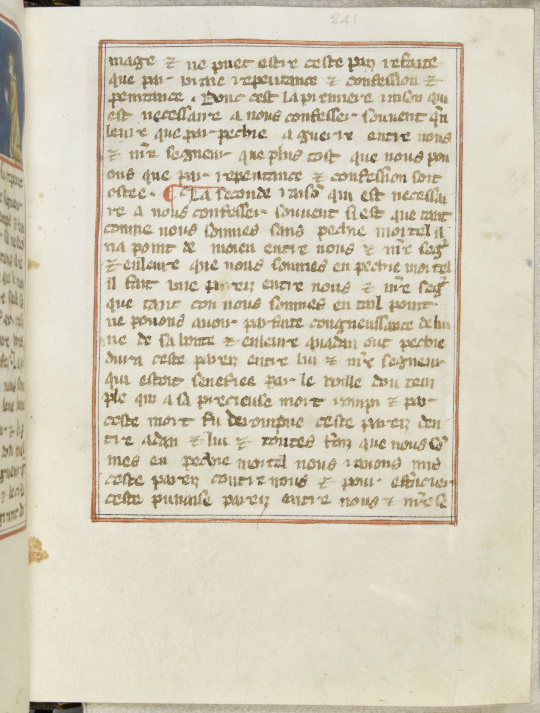 241
mage ⁊ ne puet estre ceste pais refaite
que par vraie repentance ⁊ confession ⁊
penitance. Donc cest la premiere raison qui
est necessaire a nous confesser souvent
leure que par pechie a guerre entre nous
⁊ nr̄e segneur que plus tost que nous pou
ons que par repentance ⁊ confession soit
ostee. ¶ La seconde raiso qui est necessai
re a nous confesser souvent si est que tant
comme nous sommes sans pechie mortel il
na point de moien entre nous ⁊ nr̄e seg̃
⁊ enleure que nous sommes en pechie mortel
il fait une parei entre nous ⁊ nr̄e seg̃
que tant con nous sommes en tail point
ne pouons avoir parfaite congneussance de lui
ne de sa bonte ⁊ enleure quadan out pechie
dura ceste parei entre lui ⁊ nr̄e segneur
qui estoit senefiee par le voille dou tem
ple qui a sa precieuse mort rompi ⁊ par
ceste mort fu derompue ceste parei den
tre adan ⁊ lui ⁊ toutes que nous so
mes en pechie mortel nous ravons mis
ceste parei contre nous ⁊ pour effacier
ceste punaise parei entre nous ⁊ nr̄e se